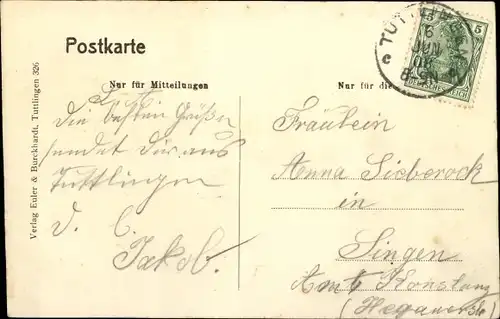 Postkarte
Nur für Mitteilungen
Die besten Grüße
sendet Dir aus
Tuttlingen
d. C.
Jakob.
Verlag Euler & Burckhardt, Tuttlingen 326
Nur für die
Fräulein
Anna Sieberock
in
Singen
Amt Konstanz
(Hegauerstr)
5
DEUTSCHES REICH
TUTTL
16
JUN
8-9N